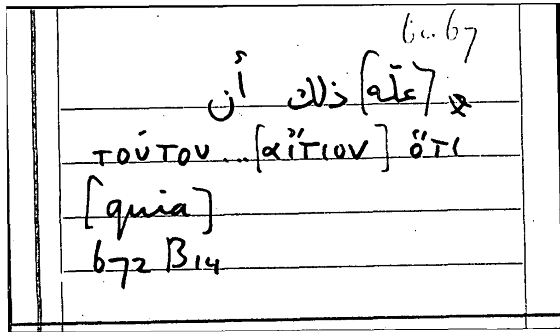 [علّة] ذلك أن
τούτου...[αἴτιον] ὅτι
[quia]
672 B14